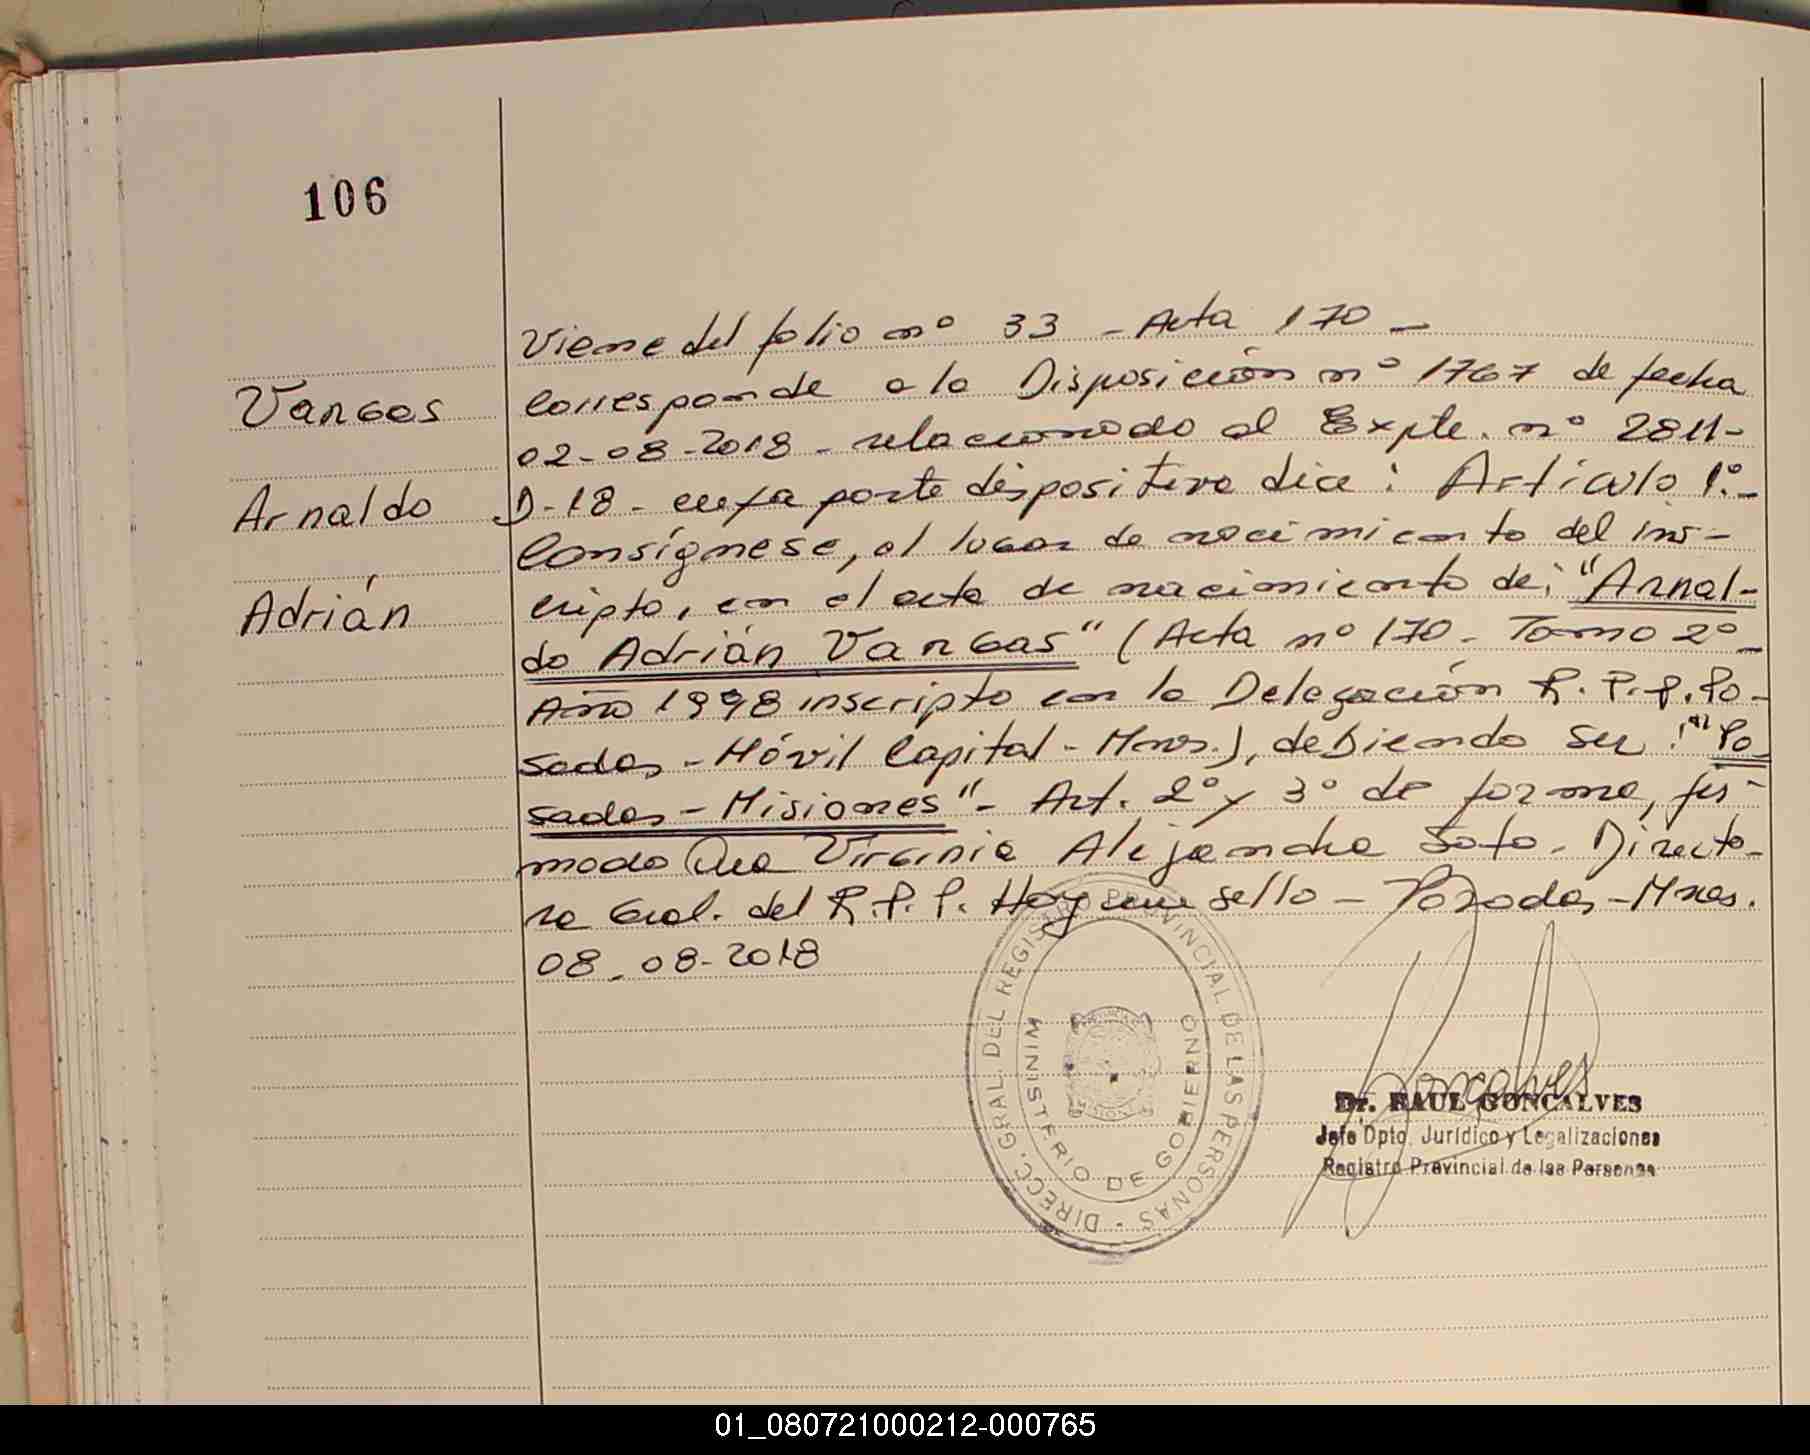 106
Vargas
Arnaldo
Adrián
Viene del folio nº 33 - Acta 170 -
Corresponde a la Disposición nº 1767 de fecha
02-08-2018 - relacionado al Expte. nº 2811-
D-18 - cuya parte dispositiva dice: Artículo 1º.-
Consígnese, el lugar de nacimiento del ins-
cripto, en el acta de nacimiento de: "Arnal-
do Adrián Vargas" (Acta nº 170 - Tomo 2º -
Año 1998 inscripto en la Delegación R.P.P. Po-
sadas - Móvil Capital - Mnes.), debiendo ser: "Po-
sadas - Misiones" - Art. 2º y 3º de forma, fir-
mado Dra Virginia Alejandra Soto - Directo-
ra Gral. del R.P.P. Hay un sello - Posadas - Mnes.
08-08-2018
DIRECC. GRAL. DEL REGISTRO PROVINCIAL DE LAS PERSONAS -
MINISTERIO DE GOBIERNO
Goncalves
Dr. RAUL GONCALVES
Jefe Dpto. Jurídico y Legalizaciones
Registro Provincial de las Personas
01_080721000212-000765